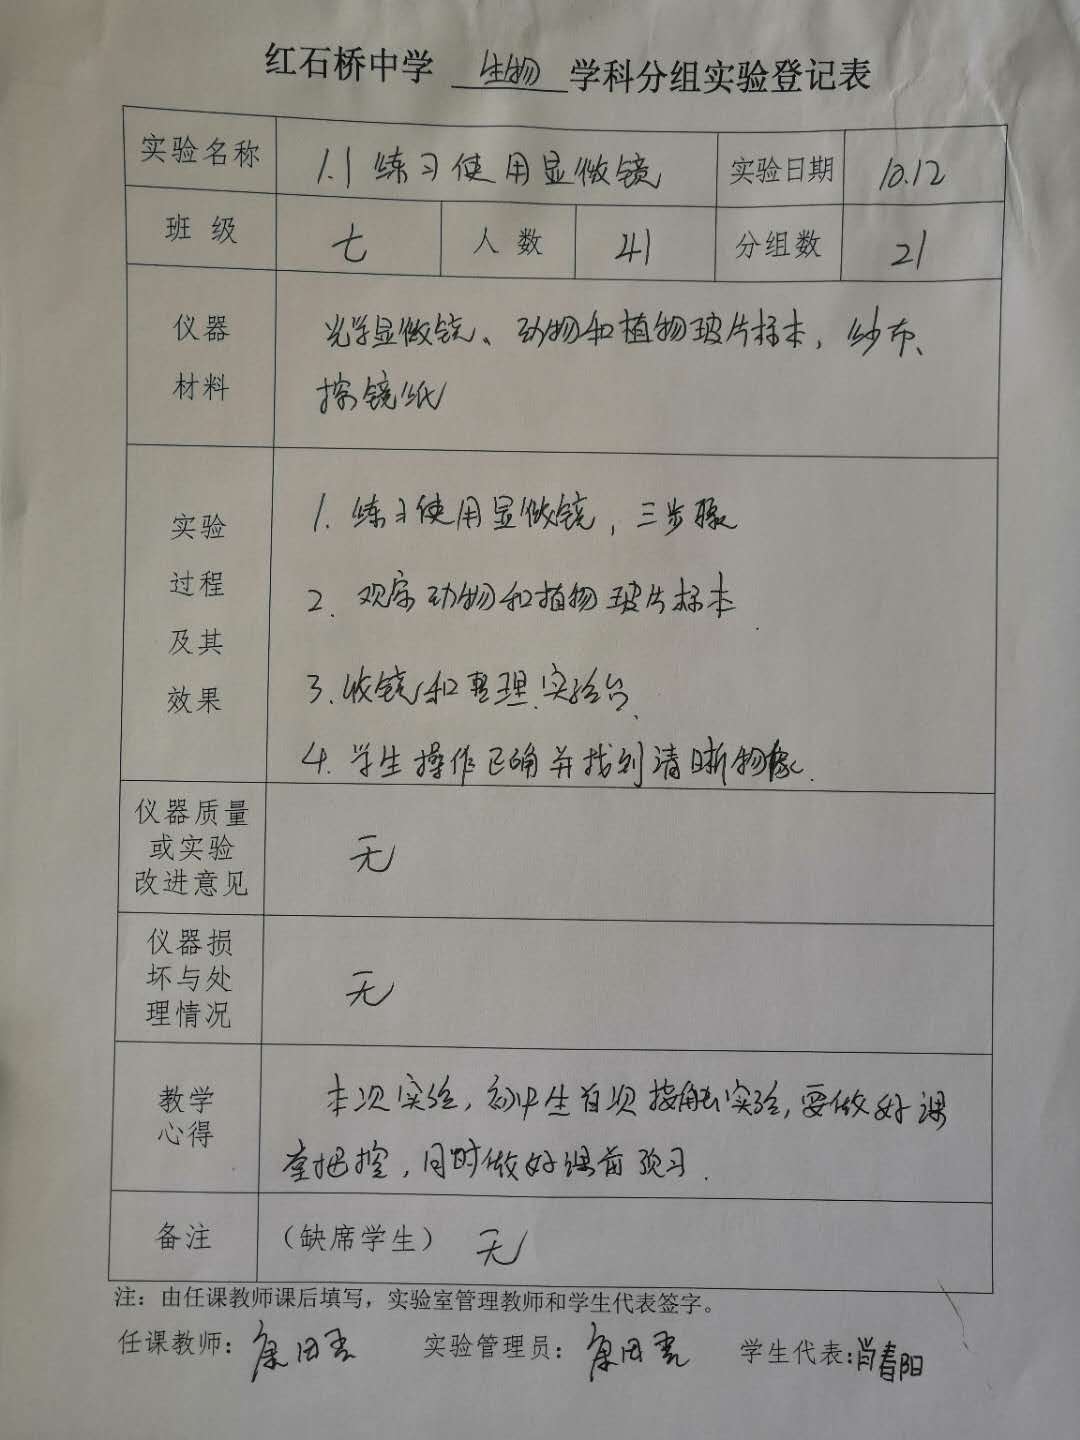 红石桥中学 生物 学科分组实验登记表
实验名称 1.1 练习使用显微镜 实验日期 10.12
班级 七 人数 41 分组数 21
仪器 光学显微镜、动物和植物玻片标本,纱布、
材料 擦镜纸
实验 1. 练习使用显微镜,三步骤
过程 2. 观察动物和植物玻片标本.
及其 3. 收镜和整理实验台.
效果 4. 学生操作正确并找到清晰物像.
仪器质量
或实验 无
改进意见
仪器损
坏与处 无
理情况
教学 本次实验,初中生首次接触实验,要做好课
心得 堂把控,同时做好课前预习.
备注 (缺席学生) 无
注:由任课教师课后填写,实验室管理教师和学生代表签字。
任课教师: 康田 实验管理员: 康田 学生代表: 肖春阳